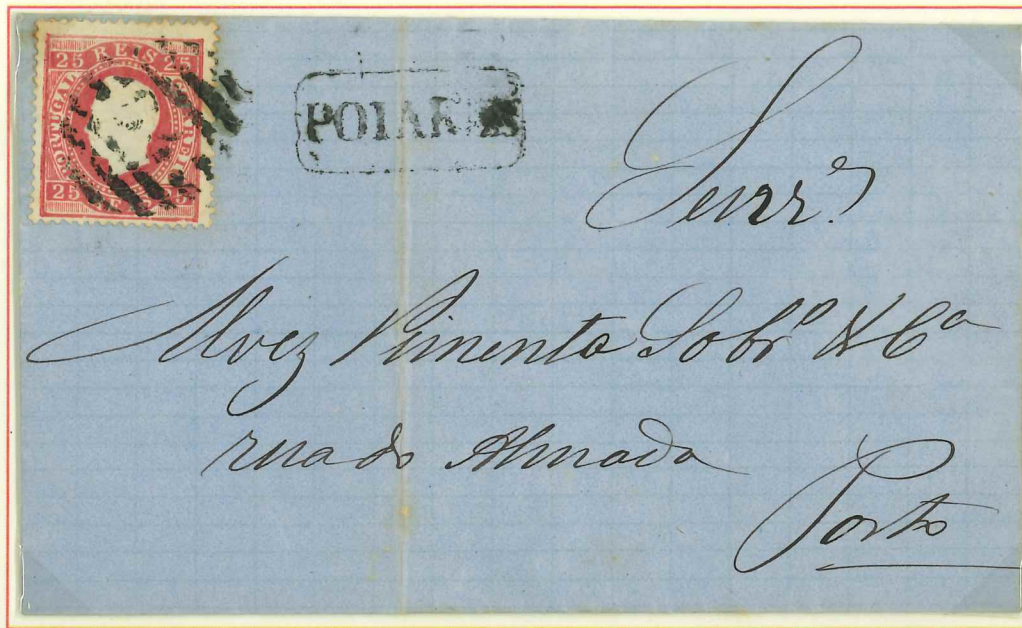 25 REIS 25
PORTUGAL
CORREIO
25 25
POIARES
Senr.es
Alvez Pimenta Sobr.o & C.a
rua do Almada
Porto